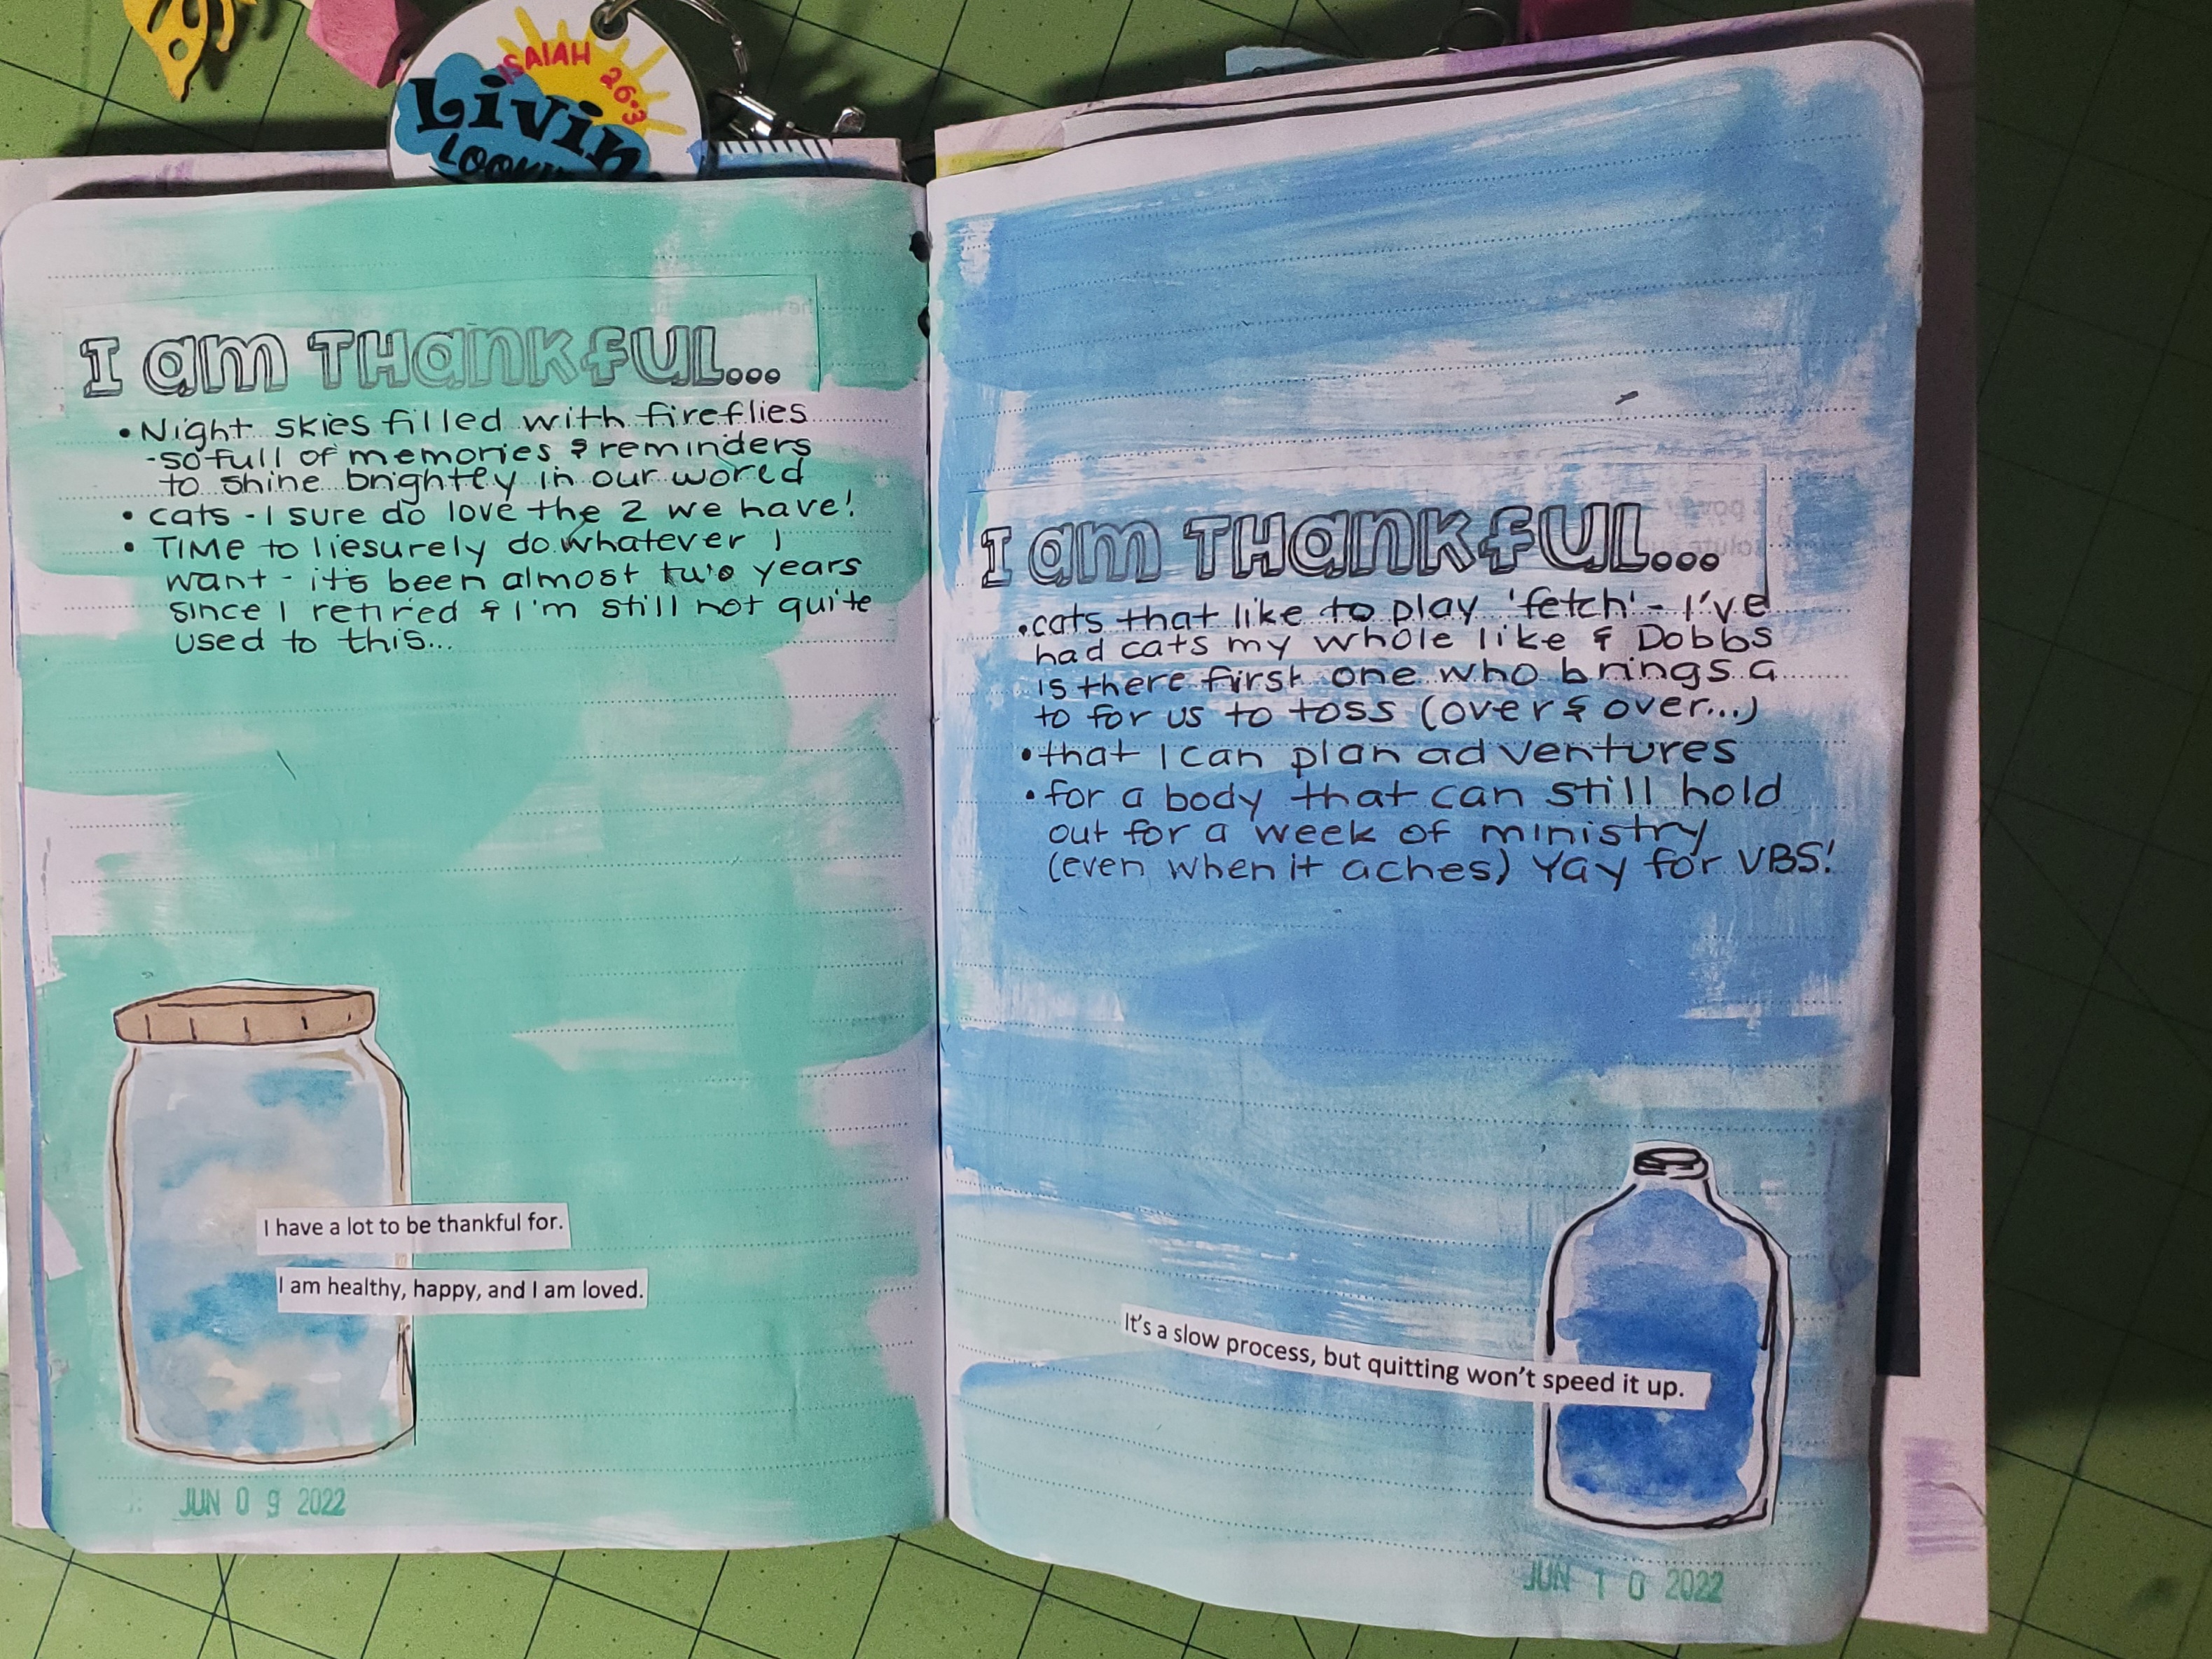 ISAIAH 26:3
Livin
LOOKI
I am THankFUL...
• Night skies filled with fireflies
- so full of memories & reminders
to shine brightly in our world
• cats - I sure do love the 2 we have!
• TIME to liesurely do whatever I
want - it's been almost two years
since I retired & I'm still not quite
used to this...
I have a lot to be thankful for.
I am healthy, happy, and I am loved.
JUN 09 2022
I am THankFUL...
• cats that like to play 'fetch' - I've
had cats my whole like & Dobbs
is there first one who brings a
to for us to toss (over & over...)
• that I can plan adventures
• for a body that can still hold
out for a week of ministry
(even when it aches) Yay for VBS!
It's a slow process, but quitting won't speed it up.
JUN 10 2022